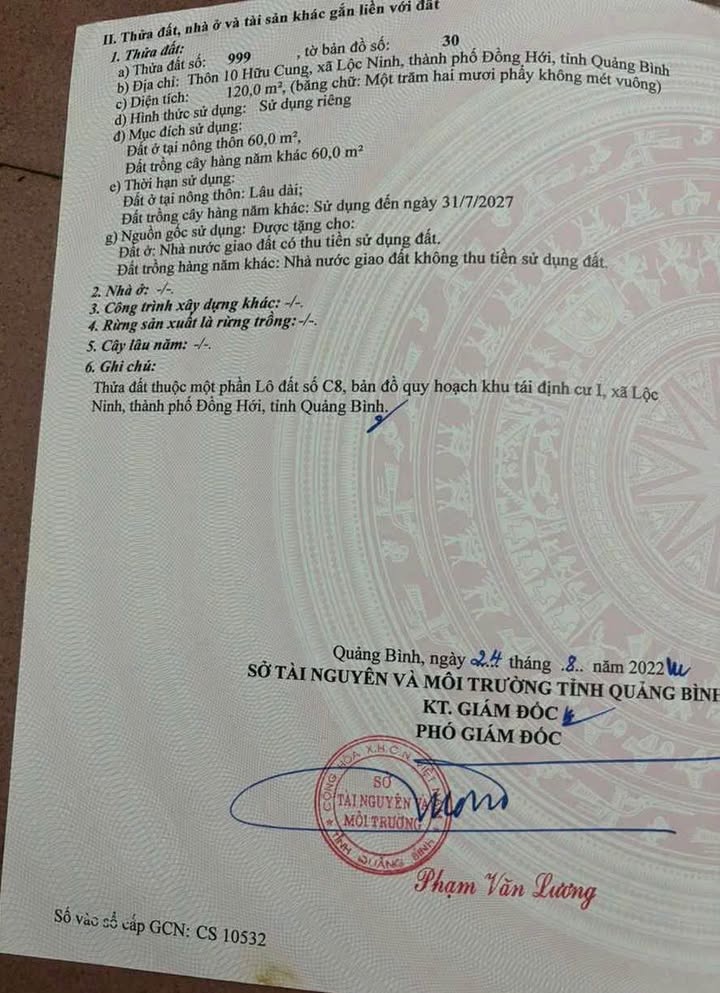 II. Thửa đất, nhà ở và tài sản khác gắn liền với đất
1. Thửa đất:
a) Thửa đất số: 999 , tờ bản đồ số: 30
b) Địa chỉ: Thôn 10 Hữu Cung, xã Lộc Ninh, thành phố Đồng Hới, tỉnh Quảng Bình
c) Diện tích: 120,0 m², (bằng chữ: Một trăm hai mươi phẩy không mét vuông)
d) Hình thức sử dụng: Sử dụng riêng
đ) Mục đích sử dụng:
Đất ở tại nông thôn 60,0 m²,
Đất trồng cây hàng năm khác 60,0 m²
e) Thời hạn sử dụng:
Đất ở tại nông thôn: Lâu dài;
Đất trồng cây hàng năm khác: Sử dụng đến ngày 31/7/2027
g) Nguồn gốc sử dụng: Được tặng cho:
Đất ở: Nhà nước giao đất có thu tiền sử dụng đất.
Đất trồng hàng năm khác: Nhà nước giao đất không thu tiền sử dụng đất.
2. Nhà ở: -/-.
3. Công trình xây dựng khác: -/-.
4. Rừng sản xuất là rừng trồng: -/-.
5. Cây lâu năm: -/-.
6. Ghi chú:
Thửa đất thuộc một phần Lô đất số C8, bản đồ quy hoạch khu tái định cư I, xã Lộc
Ninh, thành phố Đồng Hới, tỉnh Quảng Bình.
Quảng Bình, ngày 24 tháng 8 năm 2022
SỞ TÀI NGUYÊN VÀ MÔI TRƯỜNG TỈNH QUẢNG BÌNH
KT. GIÁM ĐỐC
PHÓ GIÁM ĐỐC
CỘNG HÒA X.H.C.N VIỆT NAM
SỞ
TÀI NGUYÊN VÀ
MÔI TRƯỜNG
TỈNH QUẢNG BÌNH
Phạm Văn Lương
Số vào sổ cấp GCN: CS 10532